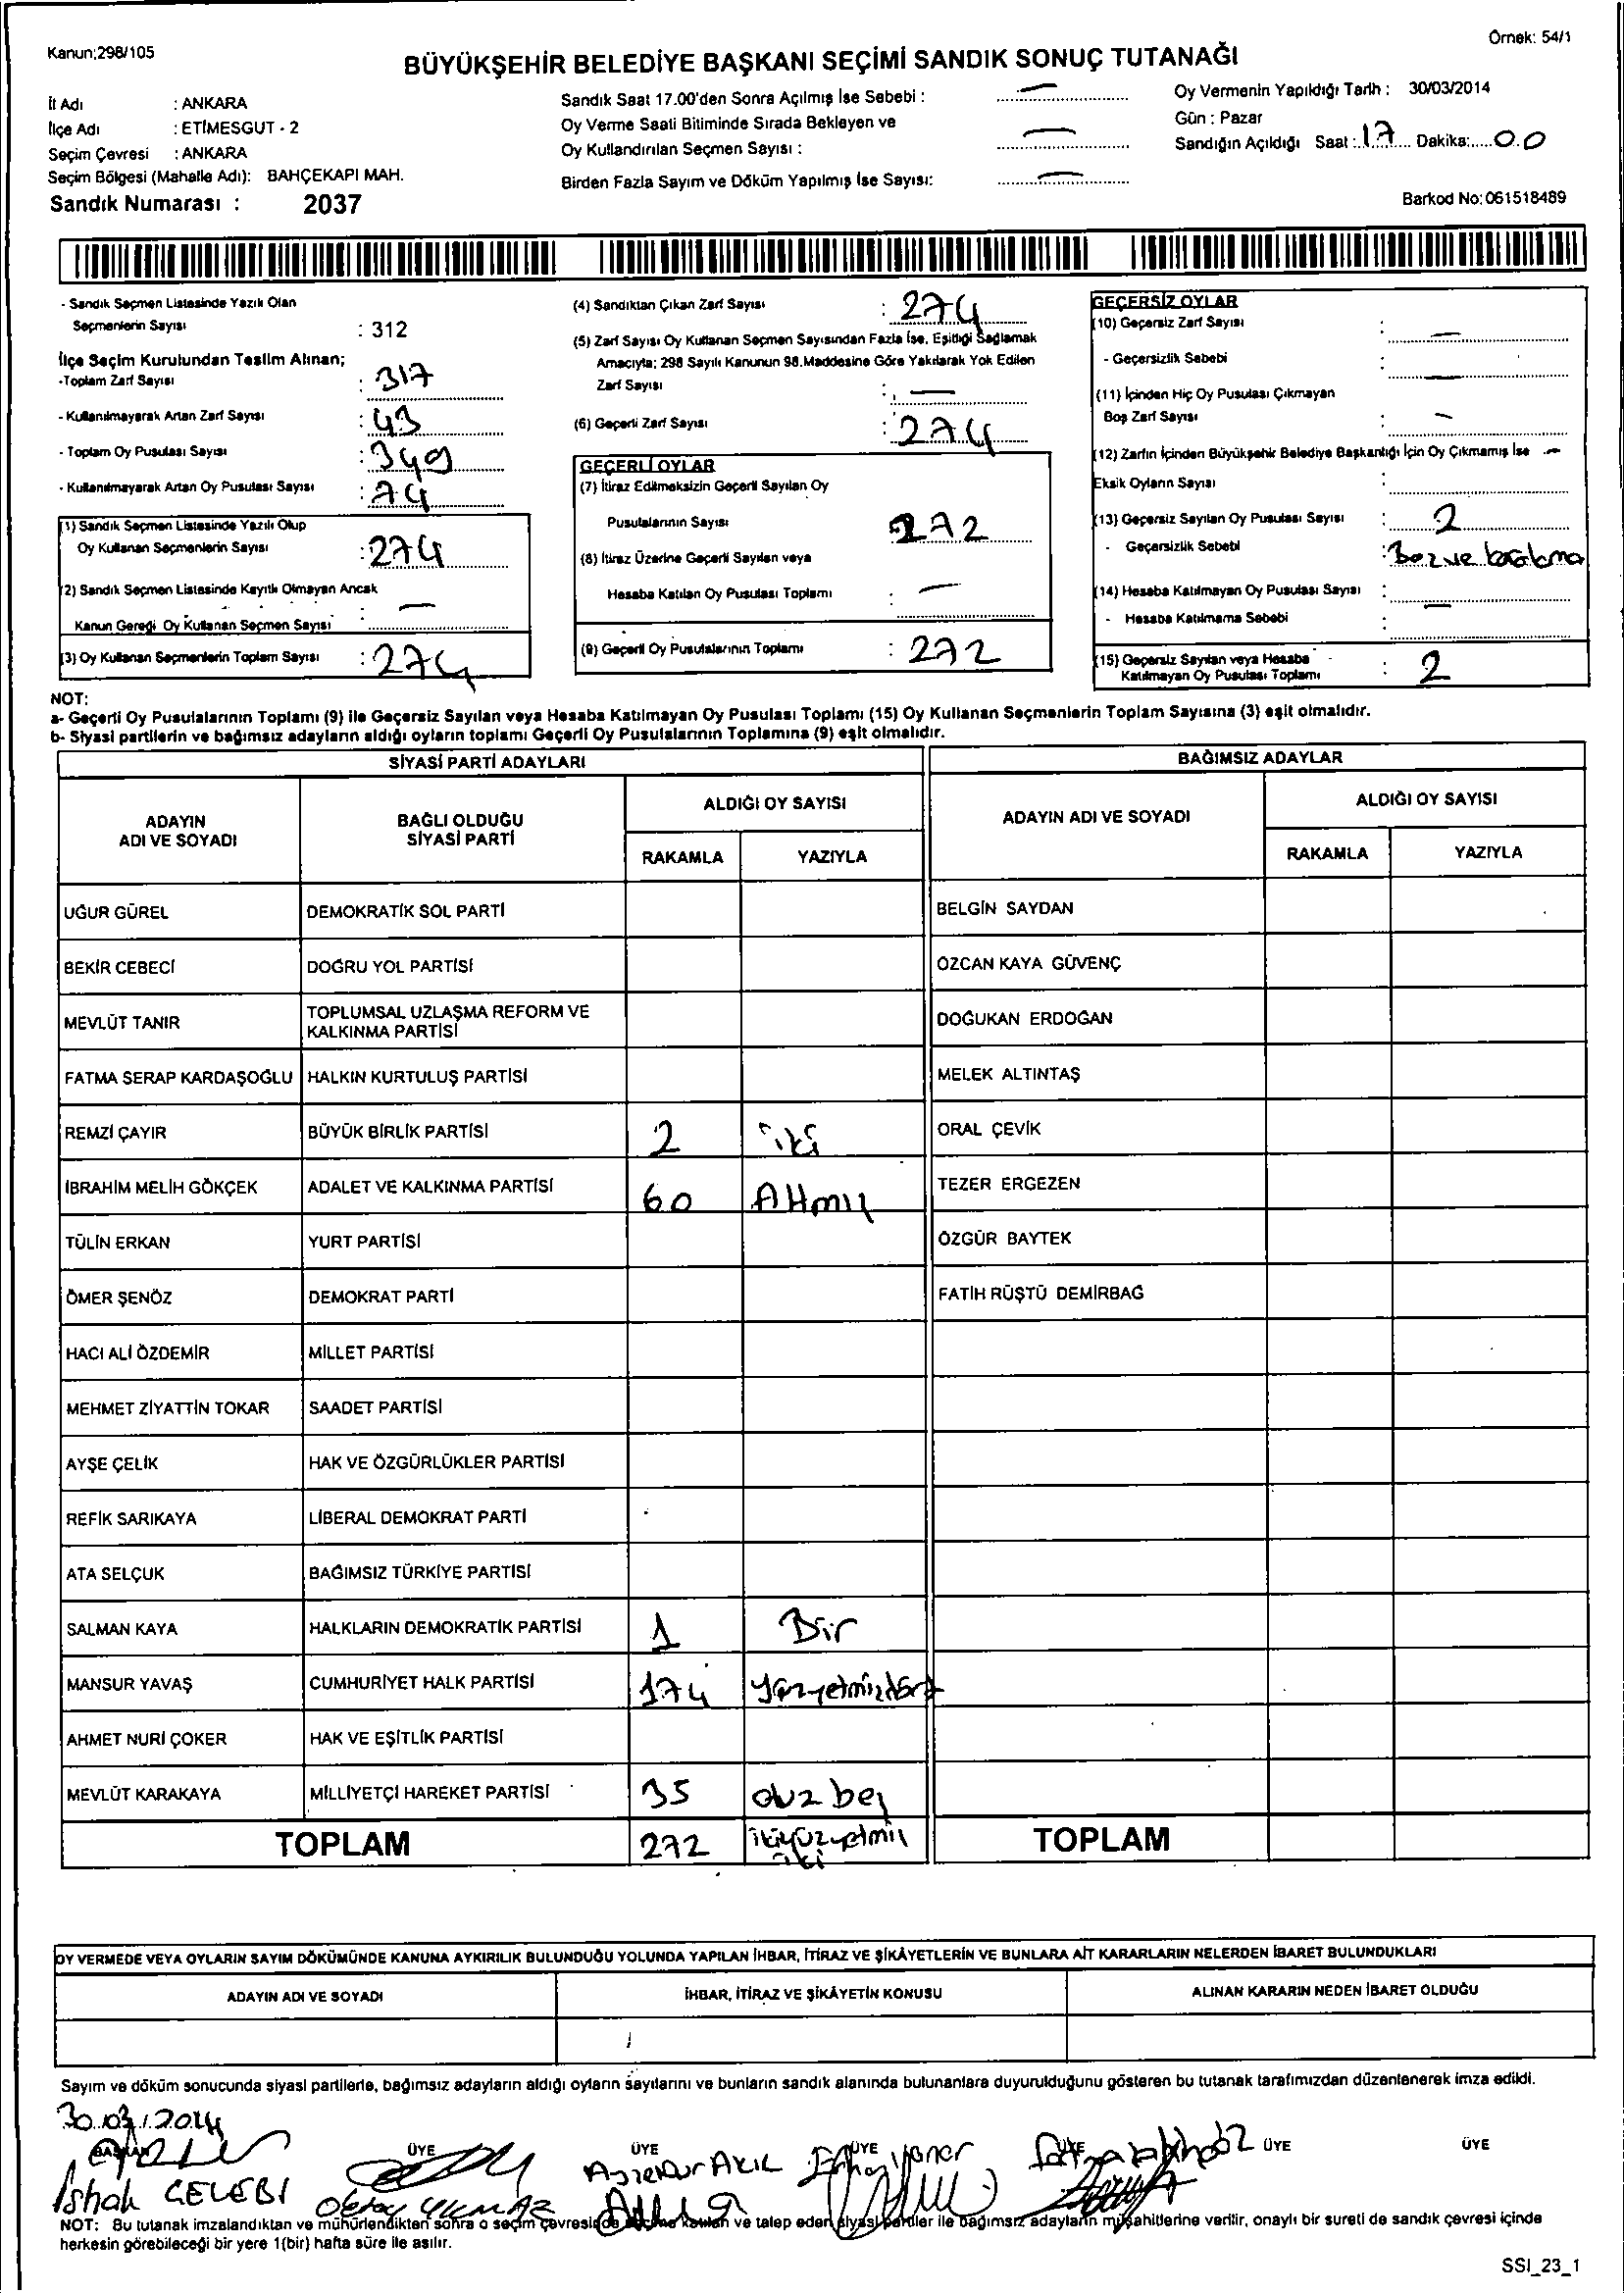 Kanun;298/105
Örnek: 54/1
BÜYÜKŞEHİR BELEDİYE BAŞKANI SEÇİMİ SANDIK SONUÇ TUTANAĞI
İl Adı : ANKARA
İlçe Adı : ETİMESGUT - 2
Seçim Çevresi : ANKARA
Seçim Bölgesi (Mahalle Adı): BAHÇEKAPI MAH.
Sandık Numarası : 2037
Sandık Saat 17.00'den Sonra Açılmış İse Sebebi : —
Oy Verme Saati Bitiminde Sırada Bekleyen ve
Oy Kullandırılan Seçmen Sayısı : —
Birden Fazla Sayım ve Döküm Yapılmış İse Sayısı: —
Oy Vermenin Yapıldığı Tarih : 30/03/2014
Gün : Pazar
Sandığın Açıldığı Saat : 17 Dakika: 00
Barkod No: 061518489
- Sandık Seçmen Listesinde Yazılı Olan
Seçmenlerin Sayısı : 312
İlçe Seçim Kurulundan Teslim Alınan;
-Toplam Zarf Sayısı : 317
- Kullanılmayarak Artan Zarf Sayısı : 43
- Toplam Oy Pusulası Sayısı : 349
- Kullanılmayarak Artan Oy Pusulası Sayısı : 74
(1) Sandık Seçmen Listesinde Yazılı Olup
Oy Kullanan Seçmenlerin Sayısı : 274
(2) Sandık Seçmen Listesinde Kayıtlı Olmayan Ancak
Kanun Gereği Oy Kullanan Seçmen Sayısı : —
(3) Oy Kullanan Seçmenlerin Toplam Sayısı : 274
(4) Sandıktan Çıkan Zarf Sayısı : 274
(5) Zarf Sayısı Oy Kullanan Seçmen Sayısından Fazla İse, Eşitliği Sağlamak
Amacıyla; 298 Sayılı Kanunun 98.Maddesine Göre Yakılarak Yok Edilen
Zarf Sayısı : —
(6) Geçerli Zarf Sayısı : 274
GEÇERLİ OYLAR
(7) İtiraz Edilmeksizin Geçerli Sayılan Oy
Pusulalarının Sayısı 272
(8) İtiraz Üzerine Geçerli Sayılan veya
Hesaba Katılan Oy Pusulası Toplamı : —
(9) Geçerli Oy Pusulalarının Toplamı : 272
GEÇERSİZ OYLAR
(10) Geçersiz Zarf Sayısı : —
- Geçersizlik Sebebi : —
(11) İçinden Hiç Oy Pusulası Çıkmayan
Boş Zarf Sayısı : —
(12) Zarfın İçinden Büyükşehir Belediye Başkanlığı İçin Oy Çıkmamış İse —
Eksik Oyların Sayısı :
(13) Geçersiz Sayılan Oy Pusulası Sayısı : 2
- Geçersizlik Sebebi :
(14) Hesaba Katılmayan Oy Pusulası Sayısı : —
- Hesaba Katılmama Sebebi :
(15) Geçersiz Sayılan veya Hesaba
Katılmayan Oy Pusulası Toplamı : 2
NOT:
a- Geçerli Oy Pusulalarının Toplamı (9) ile Geçersiz Sayılan veya Hesaba Katılmayan Oy Pusulası Toplamı (15) Oy Kullanan Seçmenlerin Toplam Sayısına (3) eşit olmalıdır.
b- Siyasi partilerin ve bağımsız adayların aldığı oyların toplamı Geçerli Oy Pusulalarının Toplamına (9) eşit olmalıdır.
SİYASİ PARTİ ADAYLARI
BAĞIMSIZ ADAYLAR
ADAYIN ADI VE SOYADI
BAĞLI OLDUĞU SİYASİ PARTİ
ALDIĞI OY SAYISI
RAKAMLA YAZIYLA
ADAYIN ADI VE SOYADI
ALDIĞI OY SAYISI
RAKAMLA YAZIYLA
UĞUR GÜREL DEMOKRATİK SOL PARTİ BELGİN SAYDAN
BEKİR CEBECİ DOĞRU YOL PARTİSİ ÖZCAN KAYA GÜVENÇ
MEVLÜT TANIR TOPLUMSAL UZLAŞMA REFORM VE KALKINMA PARTİSİ DOĞUKAN ERDOĞAN
FATMA SERAP KARDAŞOĞLU HALKIN KURTULUŞ PARTİSİ MELEK ALTINTAŞ
REMZİ ÇAYIR BÜYÜK BİRLİK PARTİSİ 2 iki ORAL ÇEVİK
İBRAHİM MELİH GÖKÇEK ADALET VE KALKINMA PARTİSİ 60 Altmış TEZER ERGEZEN
TÜLİN ERKAN YURT PARTİSİ ÖZGÜR BAYTEK
ÖMER ŞENÖZ DEMOKRAT PARTİ FATİH RÜŞTÜ DEMİRBAĞ
HACI ALİ ÖZDEMİR MİLLET PARTİSİ
MEHMET ZİYATTİN TOKAR SAADET PARTİSİ
AYŞE ÇELİK HAK VE ÖZGÜRLÜKLER PARTİSİ
REFİK SARIKAYA LİBERAL DEMOKRAT PARTİ
ATA SELÇUK BAĞIMSIZ TÜRKİYE PARTİSİ
SALMAN KAYA HALKLARIN DEMOKRATİK PARTİSİ 1 Bir
MANSUR YAVAŞ CUMHURİYET HALK PARTİSİ 174 yüzyetmişdört
AHMET NURİ ÇOKER HAK VE EŞİTLİK PARTİSİ
MEVLÜT KARAKAYA MİLLİYETÇİ HAREKET PARTİSİ 35 otuz beş
TOPLAM 272 ikiyüzyetmiş iki TOPLAM
OY VERMEDE VEYA OYLARIN SAYIM DÖKÜMÜNDE KANUNA AYKIRILIK BULUNDUĞU YOLUNDA YAPILAN İHBAR, İTİRAZ VE ŞİKÂYETLERİN VE BUNLARA AİT KARARLARIN NELERDEN İBARET BULUNDUKLARI
ADAYIN ADI VE SOYADI İHBAR, İTİRAZ VE ŞİKÂYETİN KONUSU ALINAN KARARIN NEDEN İBARET OLDUĞU
Sayım ve döküm sonucunda siyasi partilerle, bağımsız adayların aldığı oyların sayılarını ve bunların sandık alanında bulunanlara duyurulduğunu gösteren bu tutanak tarafımızdan düzenlenerek imza edildi.
30.03.2014
BAŞKAN ÜYE ÜYE ÜYE ÜYE ÜYE ÜYE
İshak ÇELEBİ
Oktay YILMAZ
Ayşenur AKIL
NOT: Bu tutanak imzalandıktan ve mühürlendikten sonra o seçim çevresinde seçime katılan ve talep eden siyasi partiler ile bağımsız adayların müşahitlerine verilir, onaylı bir sureti de sandık çevresi içinde
herkesin görebileceği bir yere 1(bir) hafta süre ile asılır.
SSI_23_1